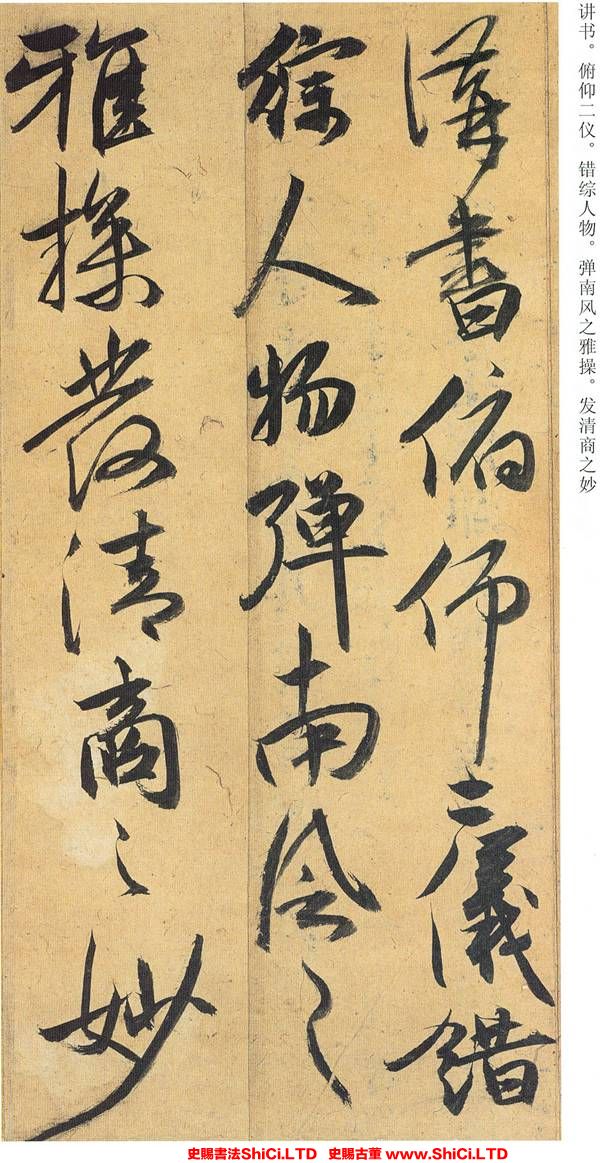 讲书。俯仰二仪。错综人物。弹南风之雅操。发清商之妙
講書俯仰二儀錯
綜人物彈南風之
雅操發清商之妙
史賜書法ShiCi.LTD 史賜古董 www.ShiCi.LTD